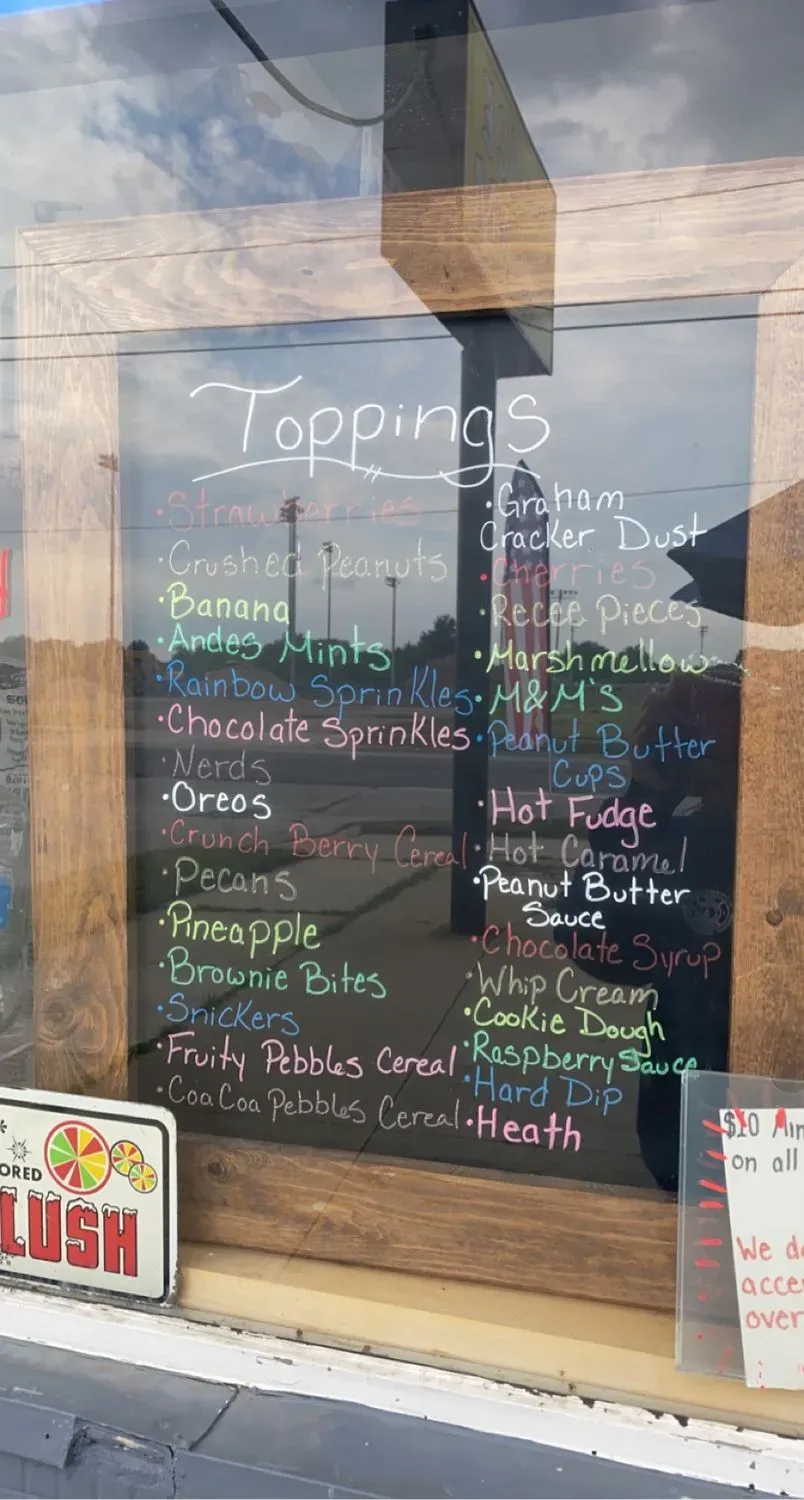 Toppings
·Strawberries
·Crushed Peanuts
·Banana
·Andes Mints
·Rainbow Sprinkles
·Chocolate Sprinkles
·Nerds
·Oreos
·Crunch Berry Cereal
·Pecans
·Pineapple
·Brownie Bites
·Snickers
·Fruity Pebbles Cereal
·CoaCoa Pebbles Cereal
·Graham
Cracker Dust
·Cherries
·Recee Pieces
·Marshmellow
·M&M's
·Peanut Butter
Cups
·Hot Fudge
·Hot Caramel
·Peanut Butter
Sauce
·Chocolate Syrup
·Whip Cream
·Cookie Dough
·Raspberry Sauce
·Hard Dip
·Heath
ORED
LUSH
$10
on all
We
over